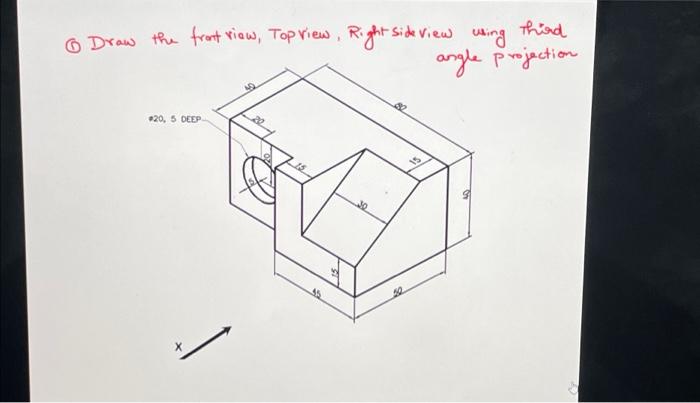 ① Draw the front view, Top view, Right side view using Third
angle projection
40
80
ø20, 5 DEEP
20
20
15
15
5
30
40
15
45
50
X